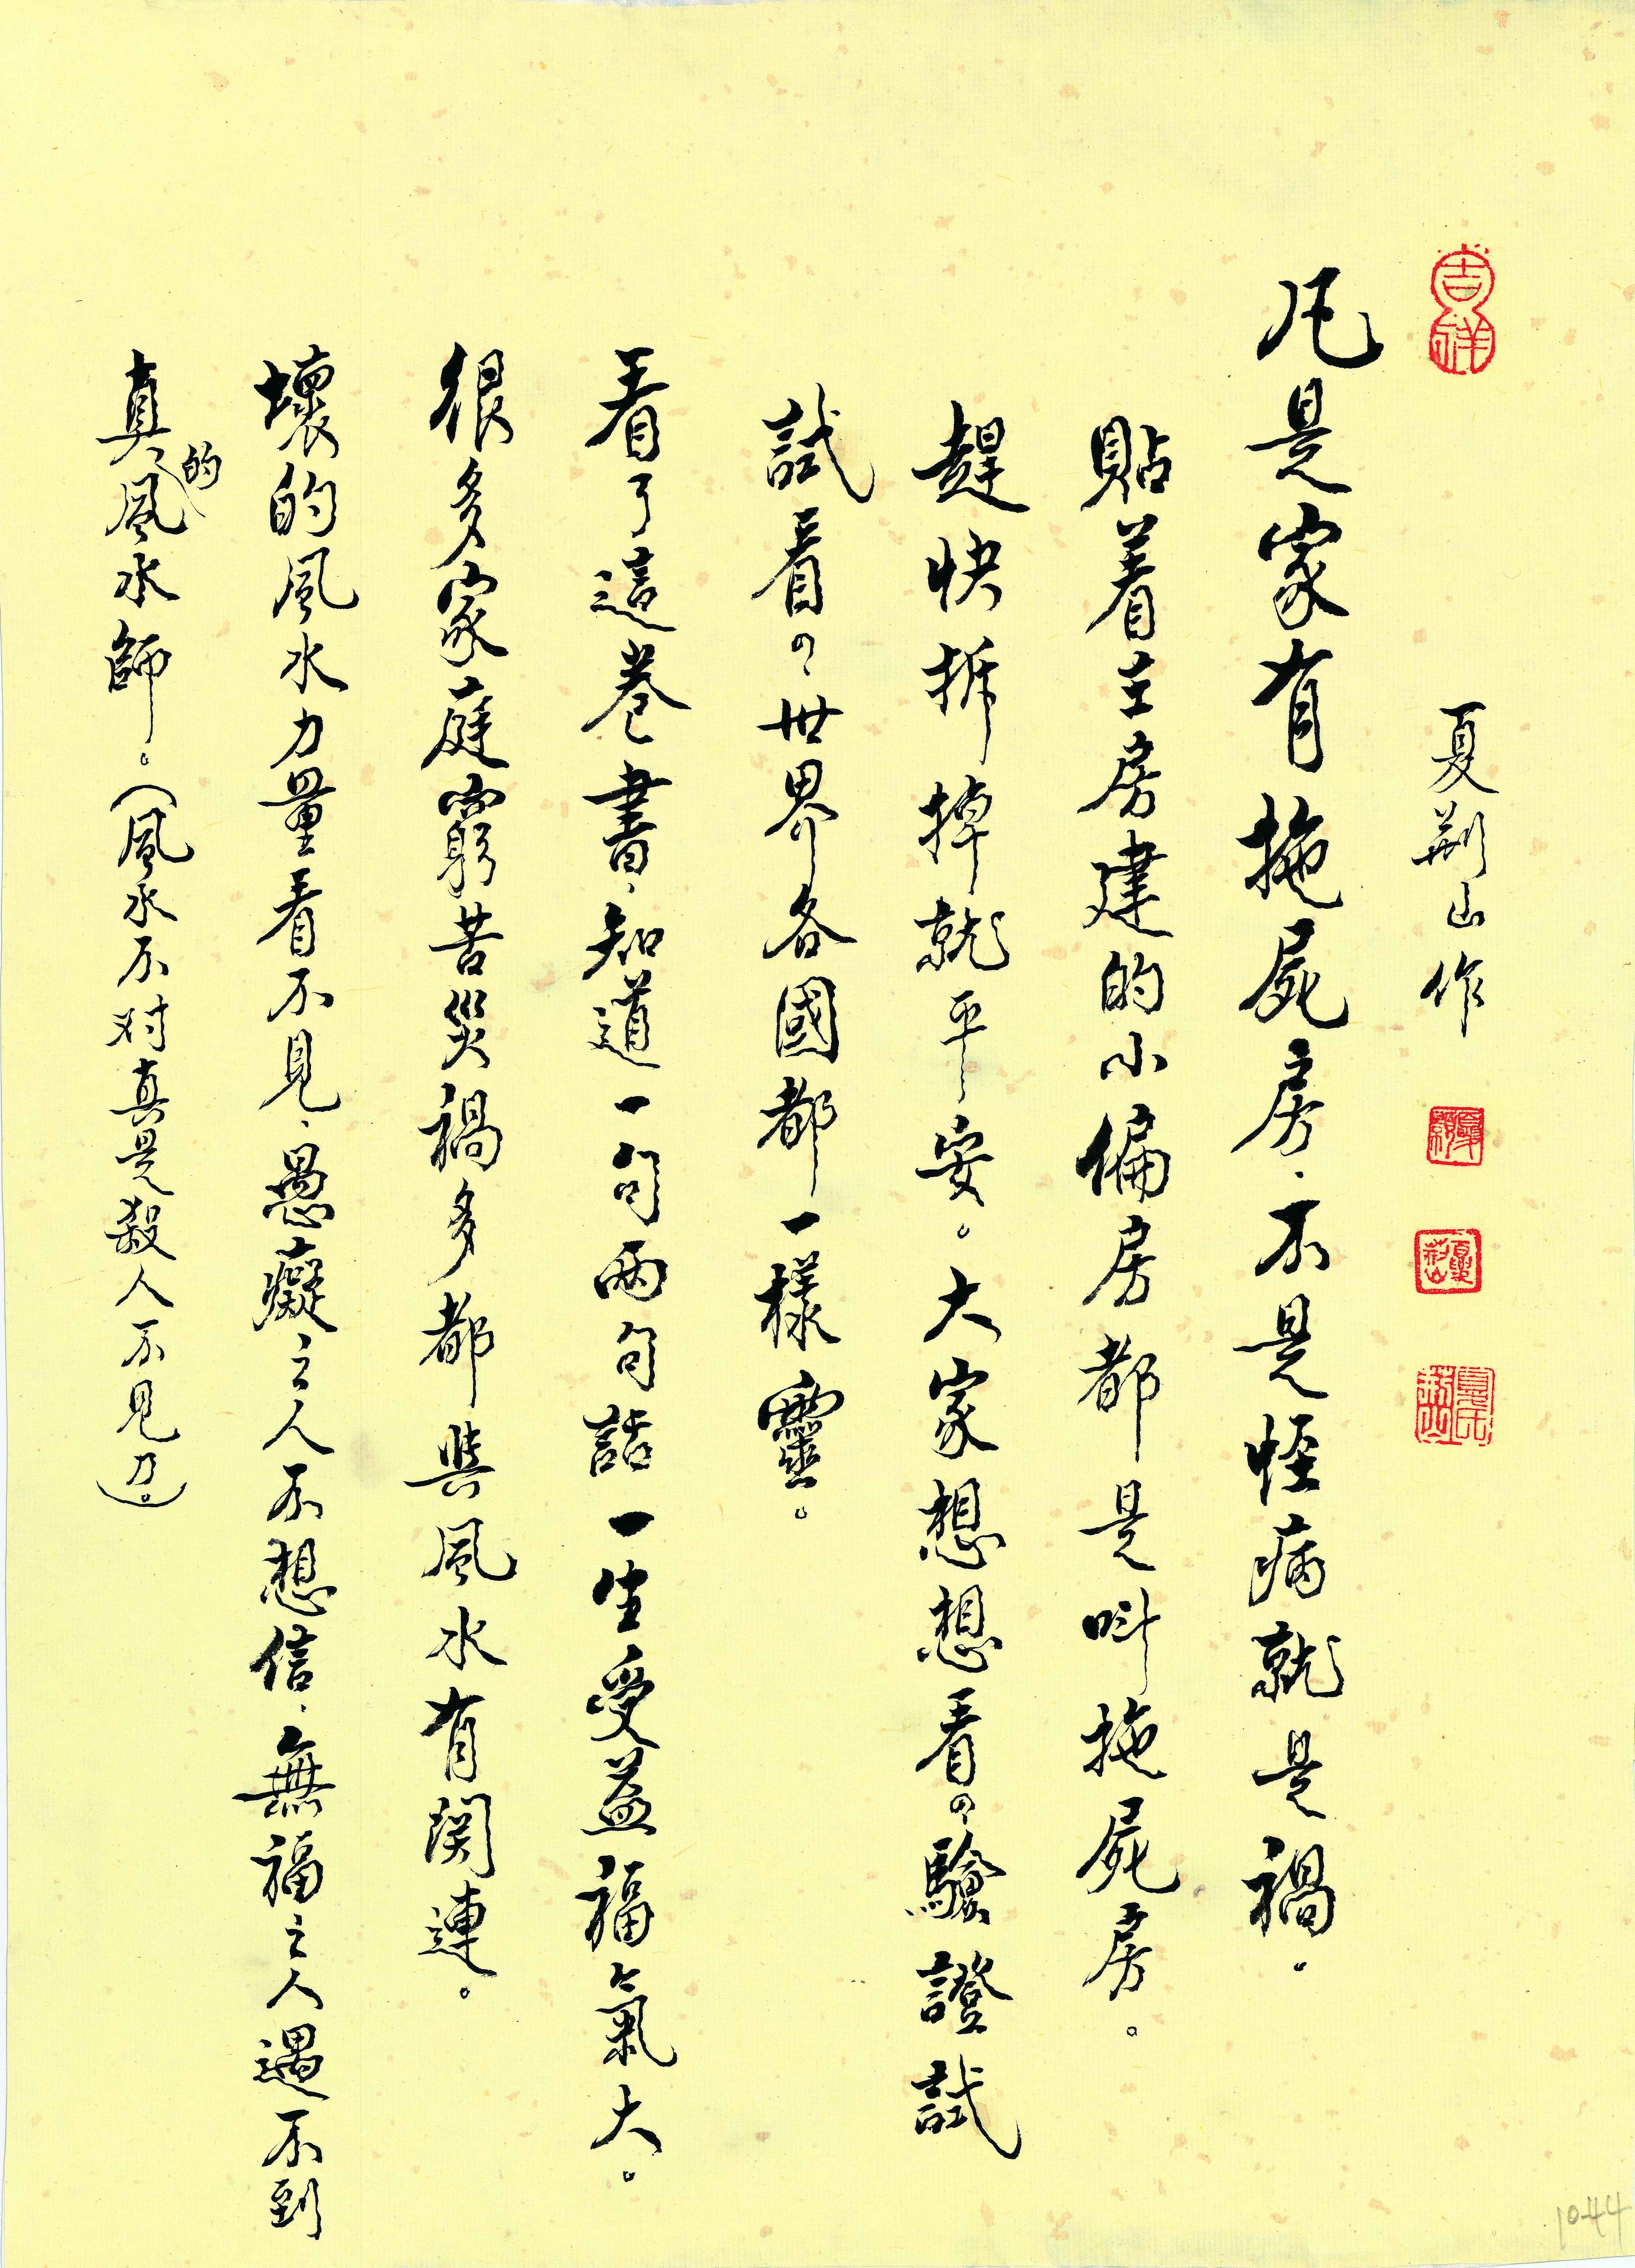 吉祥
夏荊山作
凡是家有拖屍房、不是怪病就是禍。
貼着主房建的小偏房都是叫拖屍房。
趕快拆掉就平安。大家想想看々驗證試
試看々世界各國都一樣靈。
看了這卷書、知道一句兩句話一生受益福氣大。
很多家庭窮苦災禍多都與風水有関連。
壞的風水力量看不見、愚癡之人不想信、無福之人遇不到
真的風水師。（風水不对真是殺人不見刀。）
1044